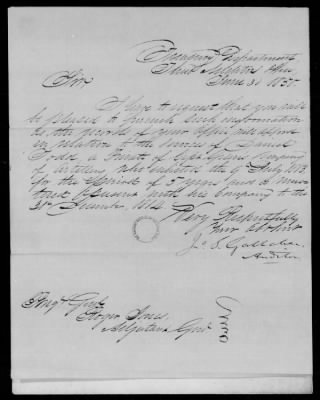 Treasury Department
Third Auditor's Office
June 3d 1850.
Sir
I have to request that you will
be pleased to furnish such information
as the records of your office will afford
in relation to the service of Daniel
Todd, a Private of Capt. Company
of Artillery, who enlisted the 9 July 1812
for the period of 5 years and is
with his company to the
31st December 1814
Very Respectfully
Your obt Servt
Jn. S. Gallaher
Auditor
Brig. Genl.
Roger Jones
Adjutant Genl